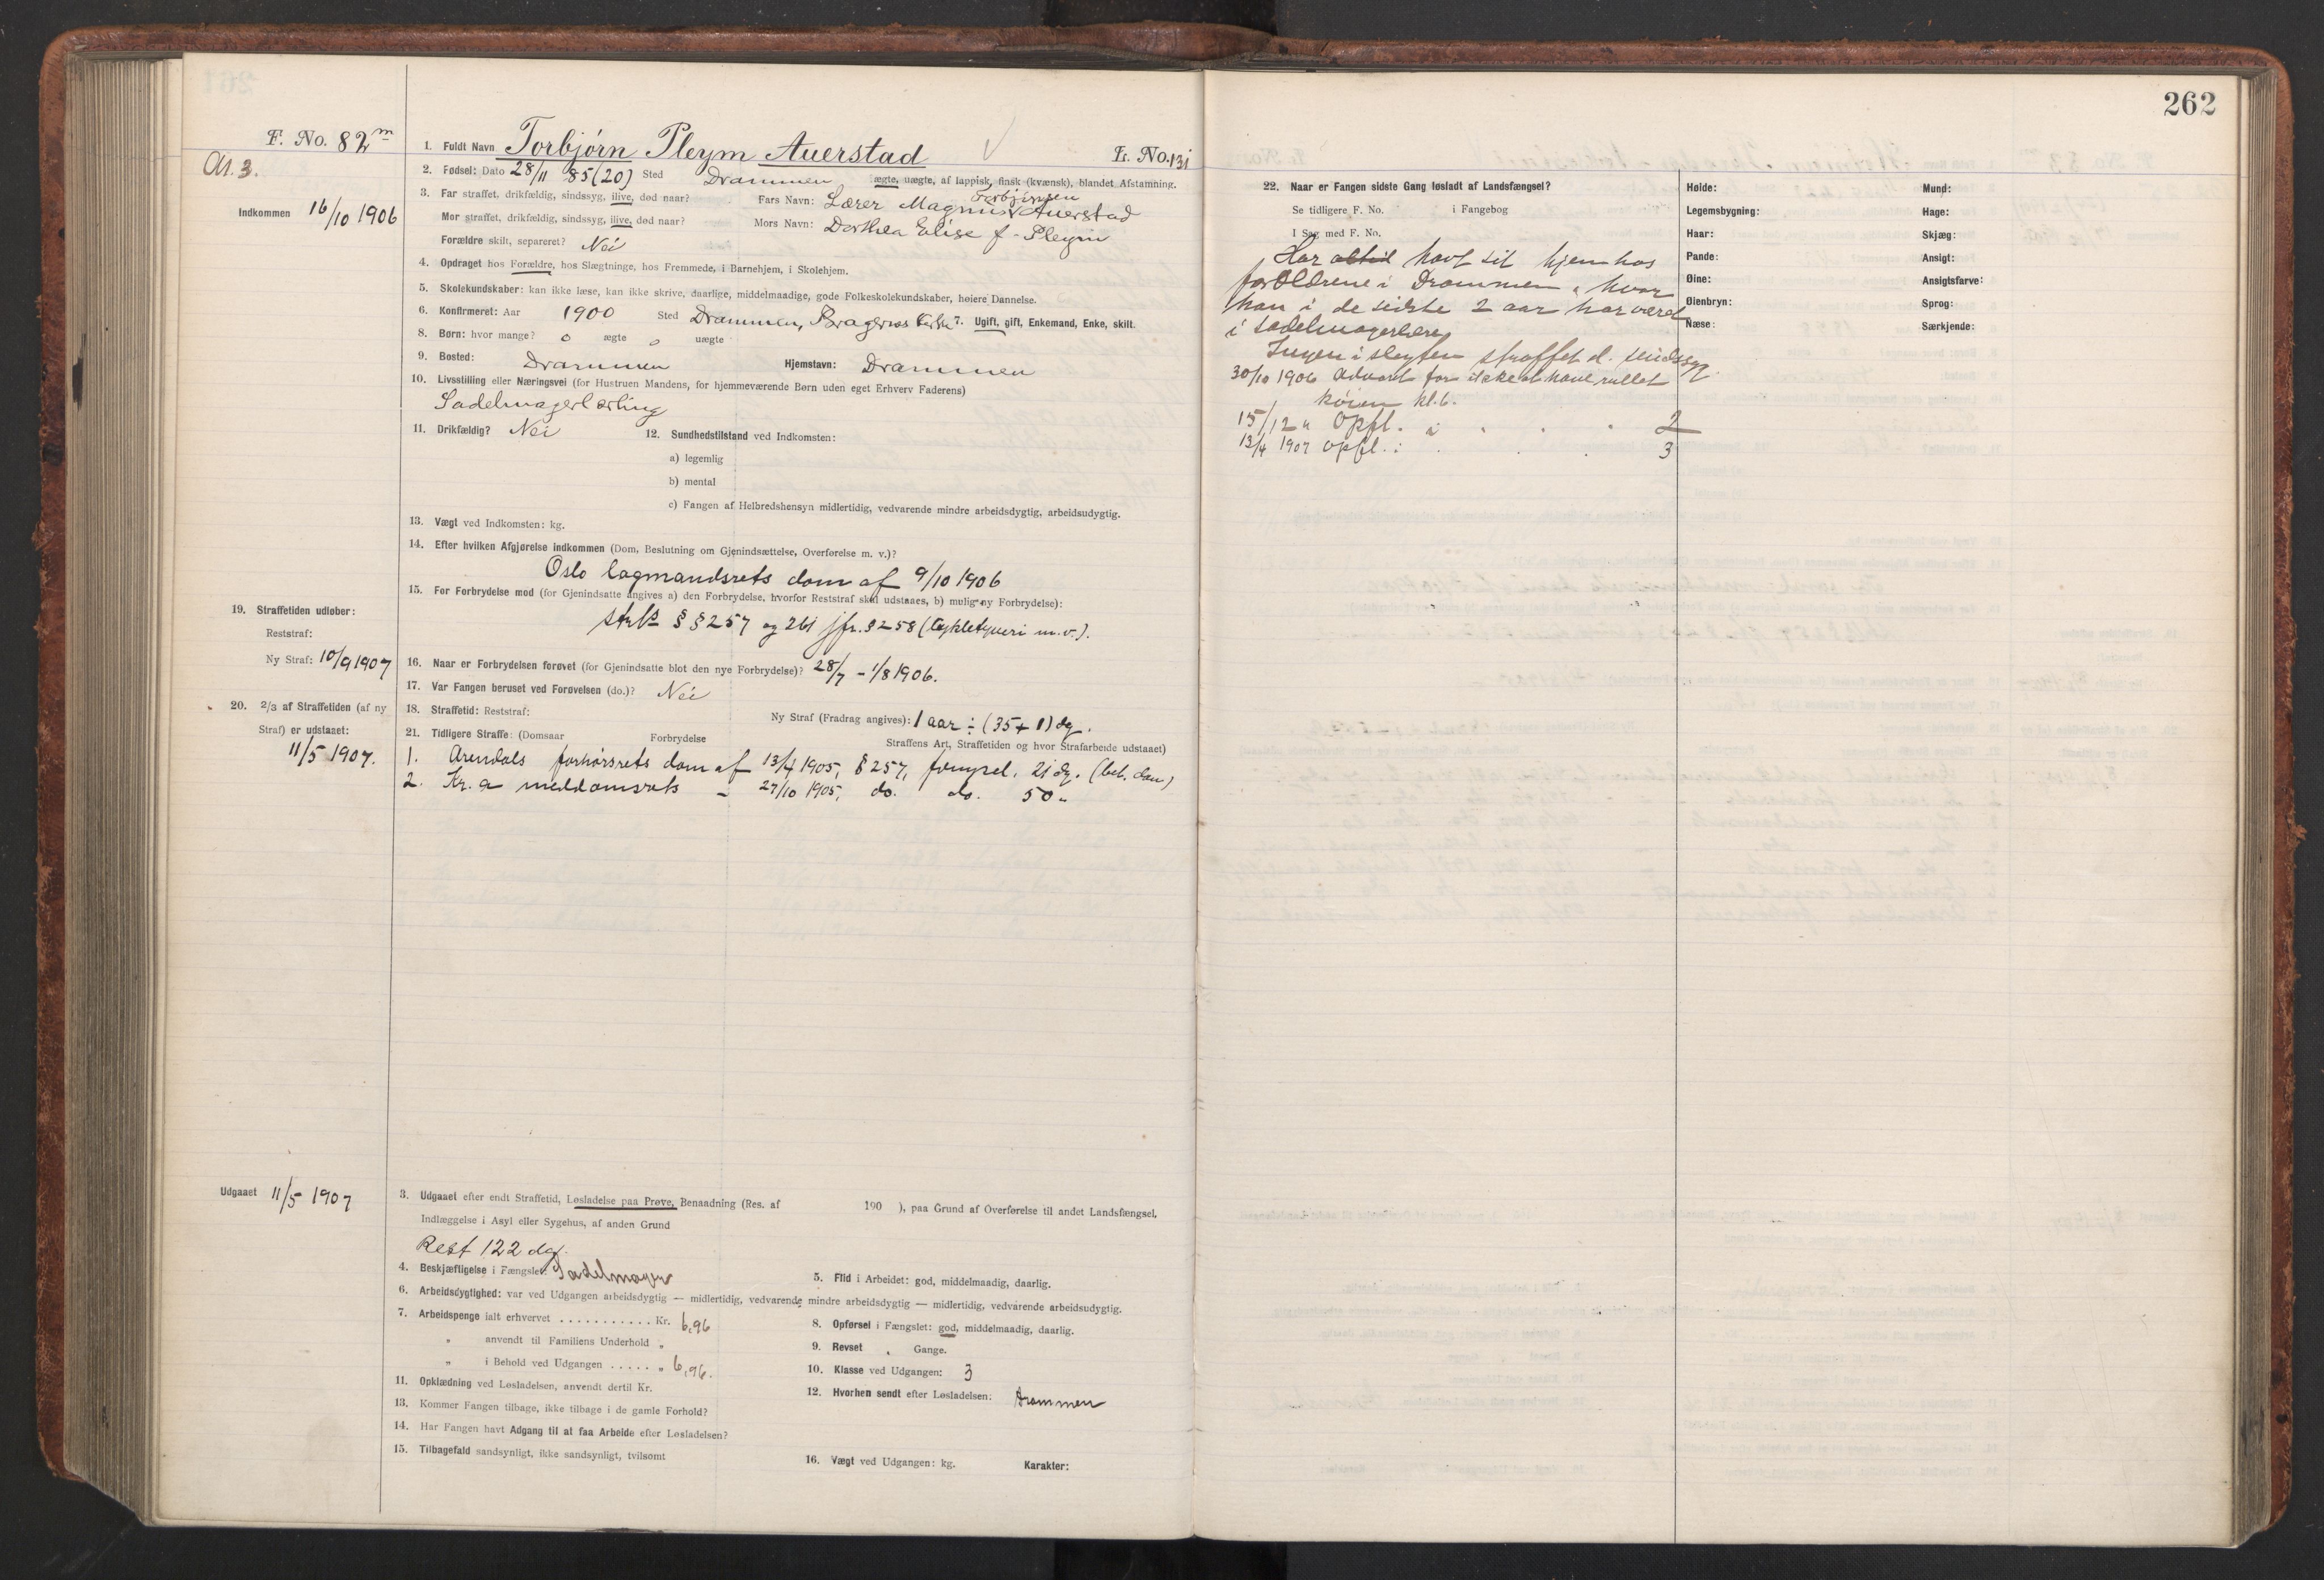 262
F. No. 82 m
Ar. 3.
Indkommen 16/10 1906
1. Fuldt Navn Torbjørn Pleym Auerstad L. No. 131
2. Fødsel: Dato 28/11 85 (20) Sted Drammen ægte, uægte, af lappisk, finsk (kvænsk), blandet Afstamning.
3. Far straffet, drikfældig, sindssyg, ilive, død naar? Fars Navn: Lærer Magnus Torbjørnsen Auerstad
Mor straffet, drikfældig, sindssyg, ilive, død naar? Mors Navn: Dorthea Elise f. Pleym
Forældre skilt, separeret? Nei
4. Opdraget hos Forældre, hos Slægtninge, hos Fremmede, i Barnehjem, i Skolehjem.
5. Skolekundskaber: kan ikke læse, kan ikke skrive, daarlige, middelmaadige, gode Folkeskolekundskaber, høiere Dannelse.
6. Konfirmeret: Aar 1900 Sted Drammen, Bragernes Kirke 7. Ugift, gift, Enkemand, Enke, skilt.
8. Børn: hvor mange? 0 ægte 0 uægte
9. Bosted: Drammen Hjemstavn: Drammen
10. Livsstilling eller Næringsvei (for Hustruen Mandens, for hjemmeværende Børn uden eget Erhverv Faderens)
Sadelmagerlærling
11. Drikfældig? Nei 12. Sundhedstilstand ved Indkomsten:
a) legemlig
b) mental
c) Fangen af Helbredshensyn midlertidig, vedvarende mindre arbeidsdygtig, arbeidsudygtig.
13. Vægt ved Indkomsten: kg.
14. Efter hvilken Afgjørelse indkommen (Dom, Beslutning om Gjenindsættelse, Overførelse m. v.)?
Oslo lagmandsrets dom af 9/10 1906
15. For Forbrydelse mod (for Gjenindsatte angives a) den Forbrydelse, hvorfor Reststraf skal udstaaes, b) mulig ny Forbrydelse):
strl. §§ 257 og 261 jfr. § 258 (Cykletyveri m.v.).
19. Straffetiden udløber:
Reststraf:
Ny Straf: 10/9 1907
16. Naar er Forbrydelsen forøvet (for Gjenindsatte blot den nye Forbrydelse)? 28/7 - 1/8 1906.
17. Var Fangen beruset ved Forøvelsen (do.)? Nei
20. 2/3 af Straffetiden (af ny
Straf) er udstaaet:
11/5 1907.
18. Straffetid: Reststraf: Ny Straf (Fradrag angives): 1 aar ÷ (35+1) dg.
21. Tidligere Straffe: (Domsaar Forbrydelse Straffens Art, Straffetiden og hvor Strafarbeide udstaaet)
1. Arendals forhørsrets dom af 13/4 1905, § 257, fængsel, 21 dg. (bet. dom)
2. Kr.a meddomsrets - 27/10 1905, do. do. 50 "
Udgaaet 11/5 1907
3. Udgaaet efter endt Straffetid, Løsladelse paa Prøve, Benaadning (Res. af 190 ), paa Grund af Overførelse til andet Landsfængsel,
Indlæggelse i Asyl eller Sygehus, af anden Grund
Rest 122 dg.
4. Beskjæftigelse i Fængslet: Sadelmager 5. Flid i Arbeidet: god, middelmaadig, daarlig.
6. Arbeidsdygtighed: var ved Udgangen arbeidsdygtig — midlertidig, vedvarende mindre arbeidsdygtig — midlertidig, vedvarende arbeidsudygtig.
7. Arbeidspenge ialt erhvervet . . . . . . . . . . . Kr. 6,96 8. Opførsel i Fængslet: god, middelmaadig, daarlig.
" anvendt til Familiens Underhold " 9. Revset " Gange.
" i Behold ved Udgangen . . . . . " 6,96. 10. Klasse ved Udgangen: 3
11. Opklædning ved Løsladelsen, anvendt dertil Kr. 12. Hvorhen sendt efter Løsladelsen: Drammen
13. Kommer Fangen tilbage, ikke tilbage i de gamle Forhold?
14. Har Fangen havt Adgang til at faa Arbeide efter Løsladelsen?
15. Tilbagefald sandsynligt, ikke sandsynligt, tvilsomt 16. Vægt ved Udgangen: kg. Karakter:
22. Naar er Fangen sidste Gang løsladt af Landsfængsel?
Se tidligere F. No. i Fangebog
I Sag med F. No.
Har altid havt sit hjem hos
forældrene i Drammen, hvor
han i de sidste 2 aar har været
i sadelmagerlære
Ingen i slegten straffet el. sindssyg.
30/10 1906 Advaret for ikke at have rullet
køien kl. 6.
15/12 " Opfl. i " " " 2
13/4 1907 Opfl. i " " " 3
Høide: Mund:
Legemsbygning: Hage:
Haar: Skjæg:
Pande: Ansigt:
Øine: Ansigtsfarve:
Øienbryn: Sprog:
Næse: Særkjende: